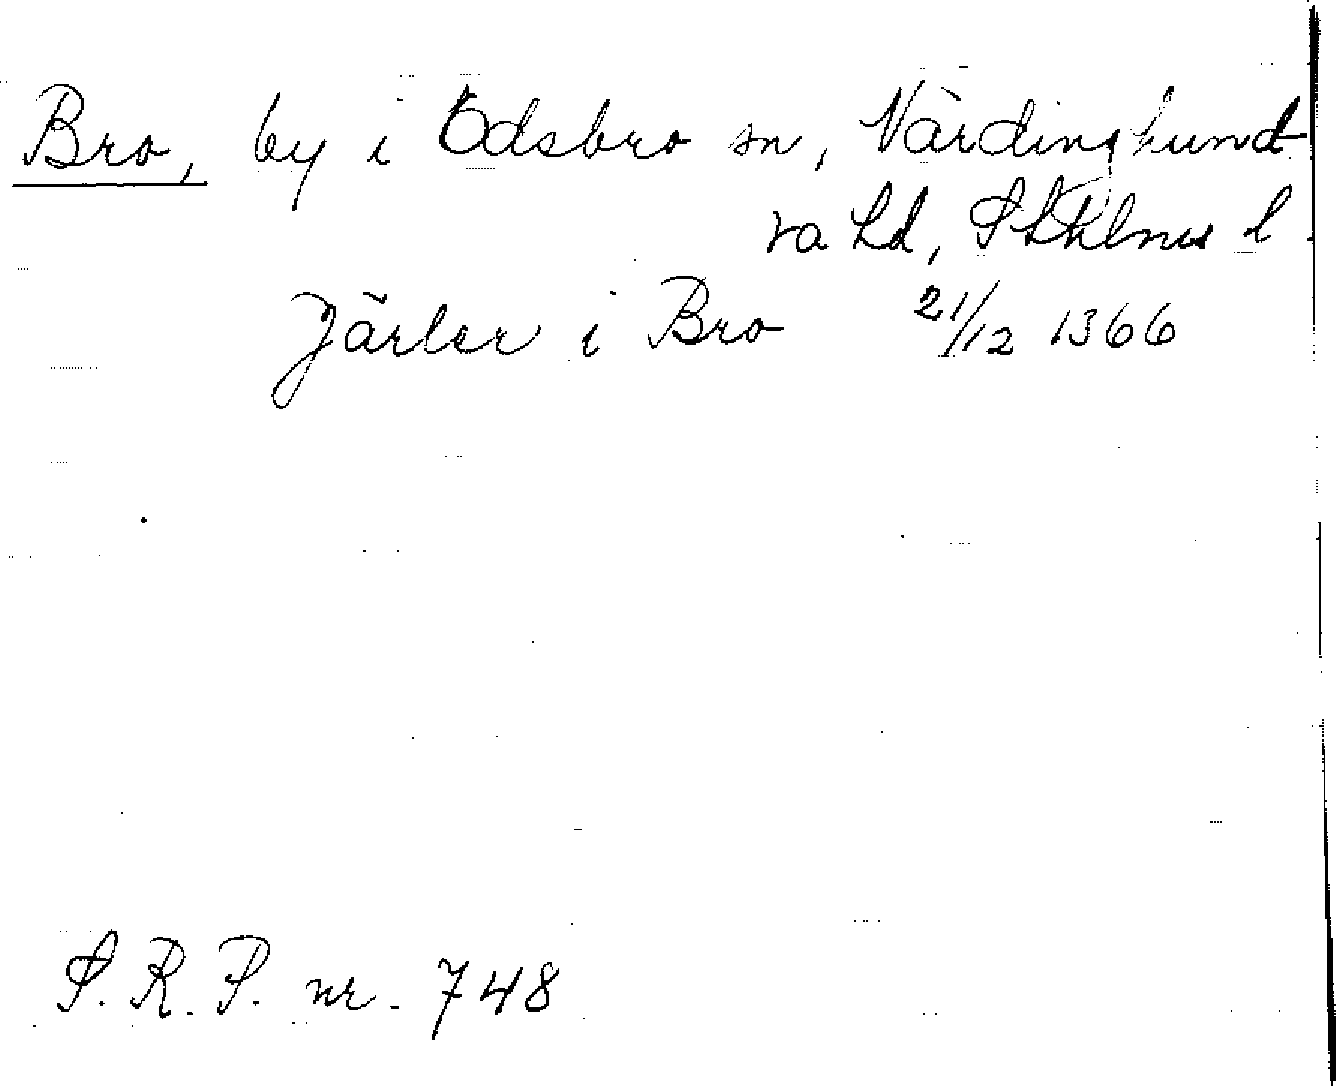 Bro, by i Edsbro sn, Närdinghund
ra hd, Sthlms l
Järler i Bro 21/12 1366
S.R.P. nr. 748